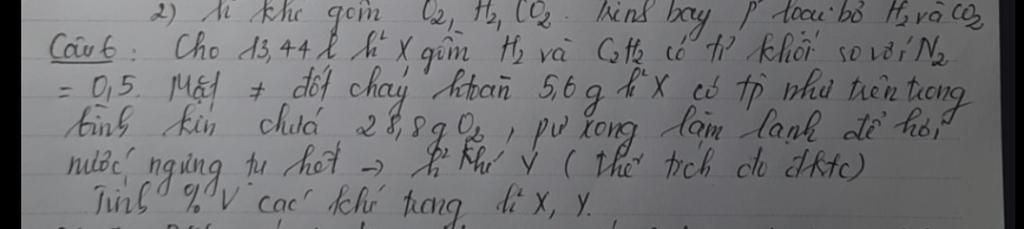 2) h² khí gồm O₂, H₂, CO₂. Trình bày p² loại bỏ H₂ và CO₂
Câu 6: Cho 13,44 l h² X gồm H₂ và C₂H₂ có tỉ khối so với N₂
= 0,5. Mặt ≠ đốt cháy htoàn 5,6 g h² X có tp như trên trong
bình kín chứa 28,8g O₂, pư xong làm lạnh để hơi
nước ngưng tụ hết → h² khí Y (thể tích đo đktc)
Tính %V các khí trong h² X, Y.